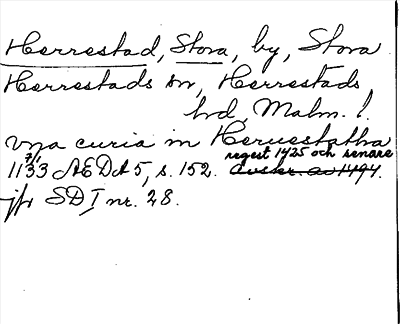 Herrestad, Stora, by, Stora
Herrestads sn, Herrestads
hd, Malm. l.
vna curia in Heruestatha
regest 1425 och senare
7/1
1133 AEDA 5, s. 152. avskr. av 1494.
jfr SD I nr. 28.